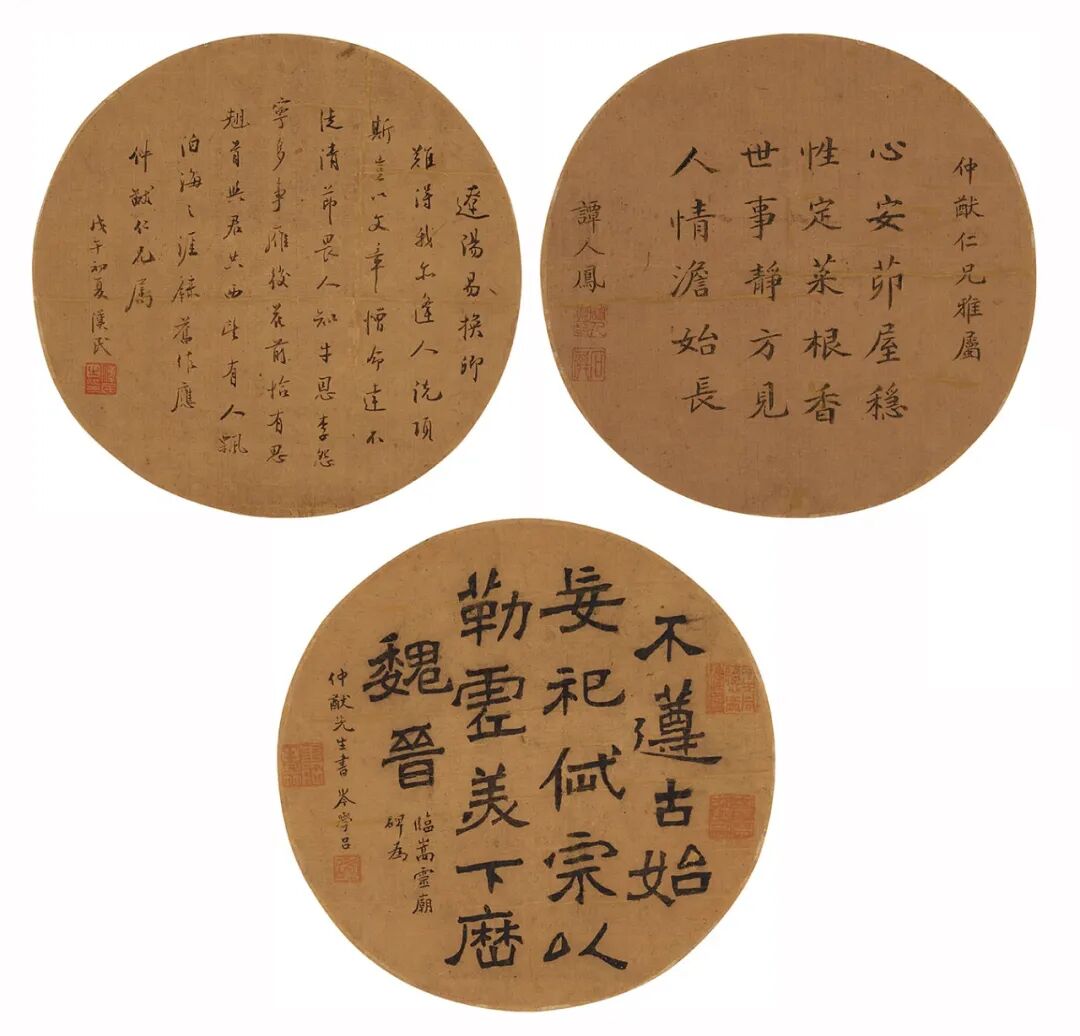 遼陽易換
難得我亦逢人說項
斯豈以文章憎命達不
徒清節畏人知牛恩李怨
寧多事雁後花前恰有思
翹首與君共西有人飄
泊海之涯錄舊作應
仲猷仁兄屬
戊午初夏漢民
仲猷仁兄雅屬
心安茆屋穩
性定菜根香
世事靜方見
人情澹始長
譚人鳳
不遵古始
妄祀岱宗以
勒靈美下歷
魏晉
臨嵩靈廟
碑為
仲猷先生書 岑學呂